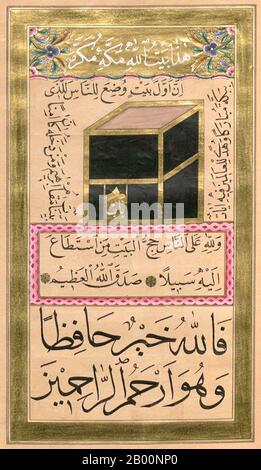 هذا بيت الله مكة مكرمه
ان اول بيت وضع للناس للذي
ببكة مباركا وهدى للعالمين فيه ايات
بينات مقام ابراهيم ومن دخله كان امنا
ولله على الناس حج البيت من استطاع
اليه سبيلا صدق الله العظيم
فالله خير حافظا
وهو ارحم الراحمين
alamy
Image ID: 2B00NP0
www.alamy.com